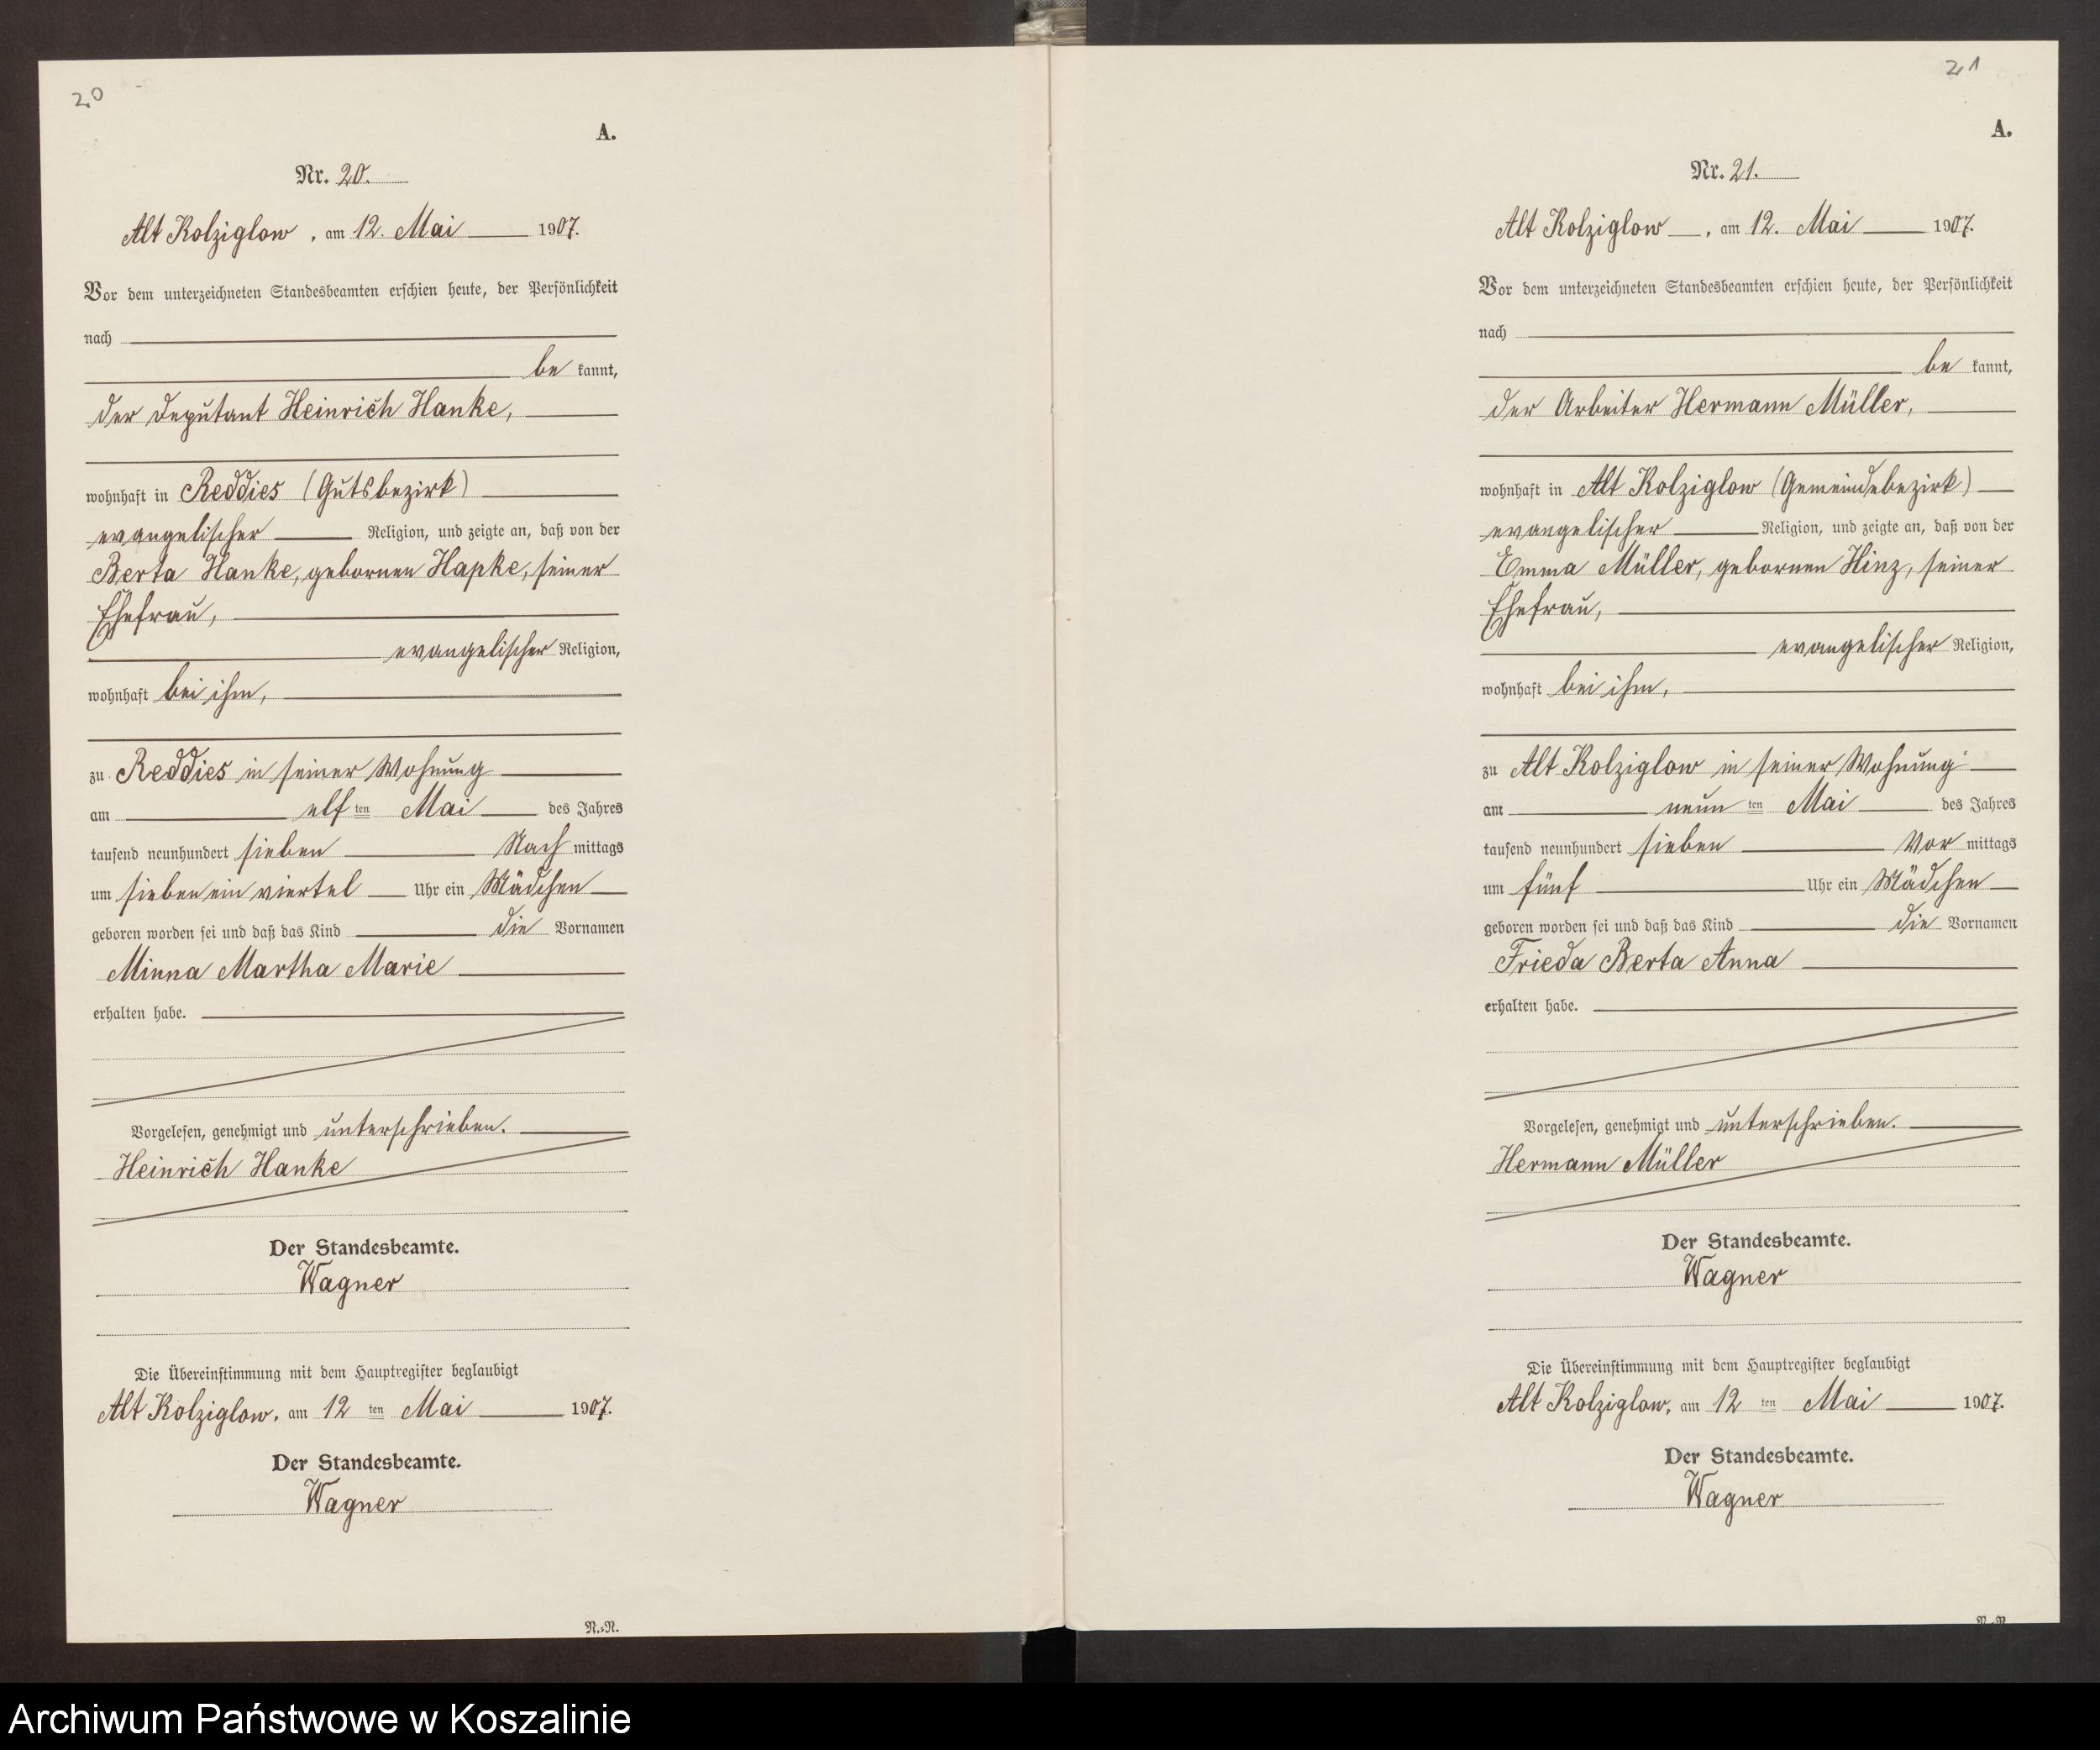 20
A.
Nr. 20.
Alt Kolziglow, am 12. Mai 1907.
Vor dem unterzeichneten Standesbeamten erschien heute, der Persönlichkeit
nach
be kannt,
der Deputant Heinrich Hanke,
wohnhaft in Reddies (Gutsbezirk)
evangelischer Religion, und zeigte an, daß von der
Berta Hanke, gebornen Hapke, seiner
Ehefrau,
evangelischer Religion,
wohnhaft bei ihm,
zu Reddies in seiner Wohnung
am elf ten Mai des Jahres
tausend neunhundert sieben Nach mittags
um sieben ein viertel Uhr ein Mädchen
geboren worden sei und daß das Kind die Vornamen
Minna Martha Marie
erhalten habe.
Vorgelesen, genehmigt und unterschrieben.
Heinrich Hanke
Der Standesbeamte.
Wagner
Die Übereinstimmung mit dem Hauptregister beglaubigt
Alt Kolziglow, am 12 ten Mai 1907.
Der Standesbeamte.
Wagner
N.-R.
21
A.
Nr. 21.
Alt Kolziglow, am 12. Mai 1907.
Vor dem unterzeichneten Standesbeamten erschien heute, der Persönlichkeit
nach
be kannt,
der Arbeiter Hermann Müller,
wohnhaft in Alt Kolziglow (Gemeindebezirk)
evangelischer Religion, und zeigte an, daß von der
Emma Müller, gebornen Hinz, seiner
Ehefrau,
evangelischer Religion,
wohnhaft bei ihm,
zu Alt Kolziglow in seiner Wohnung
am neun ten Mai des Jahres
tausend neunhundert sieben Vor mittags
um fünf Uhr ein Mädchen
geboren worden sei und daß das Kind die Vornamen
Frieda Berta Anna
erhalten habe.
Vorgelesen, genehmigt und unterschrieben.
Hermann Müller
Der Standesbeamte.
Wagner
Die Übereinstimmung mit dem Hauptregister beglaubigt
Alt Kolziglow, am 12 ten Mai 1907.
Der Standesbeamte.
Wagner
Archiwum Państwowe w Koszalinie